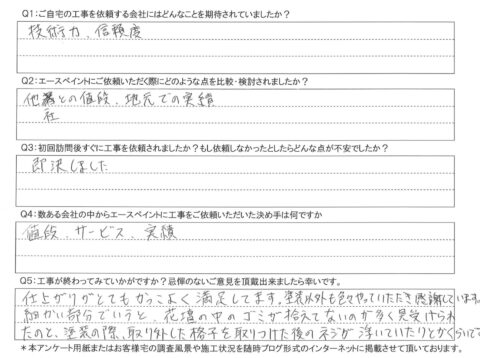 Q1：ご自宅の工事を依頼する会社にはどんなことを期待されていましたか？
技術力、信頼度
Q2：エースペイントにご依頼いただく際にどのような点を比較・検討されましたか？
他社との値段、地元での実績
Q3：初回訪問後すぐに工事を依頼されましたか？もし依頼しなかったとしたらどんな点が不安でしたか？
即決しました
Q4：数ある会社の中からエースペイントに工事をご依頼いただいた決め手は何ですか
値段、サービス、実績
Q5：工事が終わってみていかがですか？忌憚のないご意見を頂戴出来ましたら幸いです。
仕上がりがとてもかっこよく満足してます。塗装以外も色々やっていただき感謝しています。
細かい部分でいうと、花壇の中のゴミが拾えてないのが多く見受けられ
たのと、塗装の際、取り外した格子を取りつけた後のネジが浮いていたりとか
＊本アンケート用紙またはお客様宅の調査風景や施工状況を随時ブログ形式のインターネットに掲載させて頂いております。